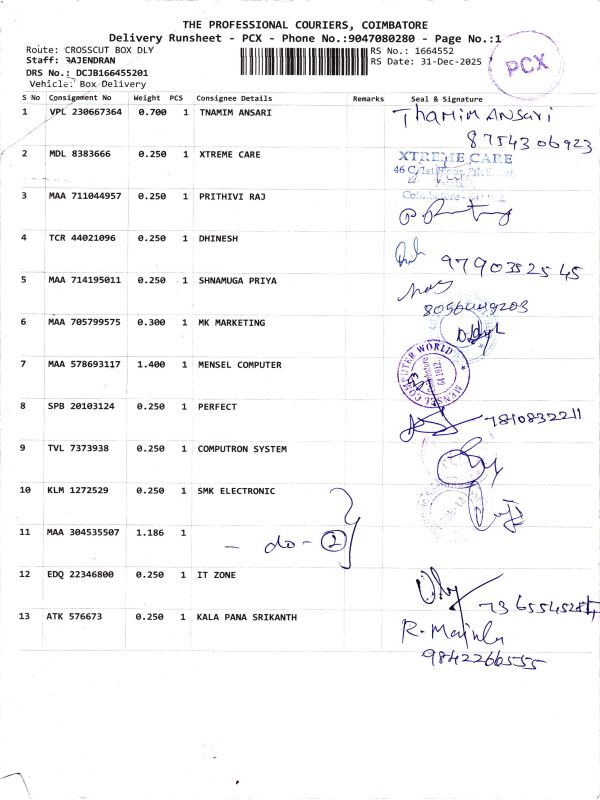 THE PROFESSIONAL COURIERS, COIMBATORE
Delivery Runsheet - PCX - Phone No.:9047080280 - Page No.:1
Route: CROSSCUT BOX DLY
RS No.: 1664552
Staff: RAJENDRAN
RS Date: 31-Dec-2025
DRS No.: DCJB166455201
Vehicle: Box Delivery
PCX
S No Consignment No Weight PCS Consignee Details Remarks Seal & Signature
1 VPL 230667364 0.700 1 TNAMIM ANSARI
Thamim Ansari
8754306923
2 MDL 8383666 0.250 1 XTREME CARE
XTREME CARE
3 MAA 711044957 0.250 1 PRITHIVI RAJ
4 TCR 44021096 0.250 1 DHINESH
9790352545
5 MAA 714195011 0.250 1 SHNAMUGA PRIYA
6 MAA 705799575 0.300 1 MK MARKETING
7 MAA 578693117 1.400 1 MENSEL COMPUTER
MENSEL COMPUTER WORLD
8 SPB 20103124 0.250 1 PERFECT
7810832211
9 TVL 7373938 0.250 1 COMPUTRON SYSTEM
10 KLM 1272529 0.250 1 SMK ELECTRONIC
11 MAA 304535507 1.186 1
- do - 2
12 EDQ 22346800 0.250 1 IT ZONE
13 ATK 576673 0.250 1 KALA PANA SRIKANTH
9842266555